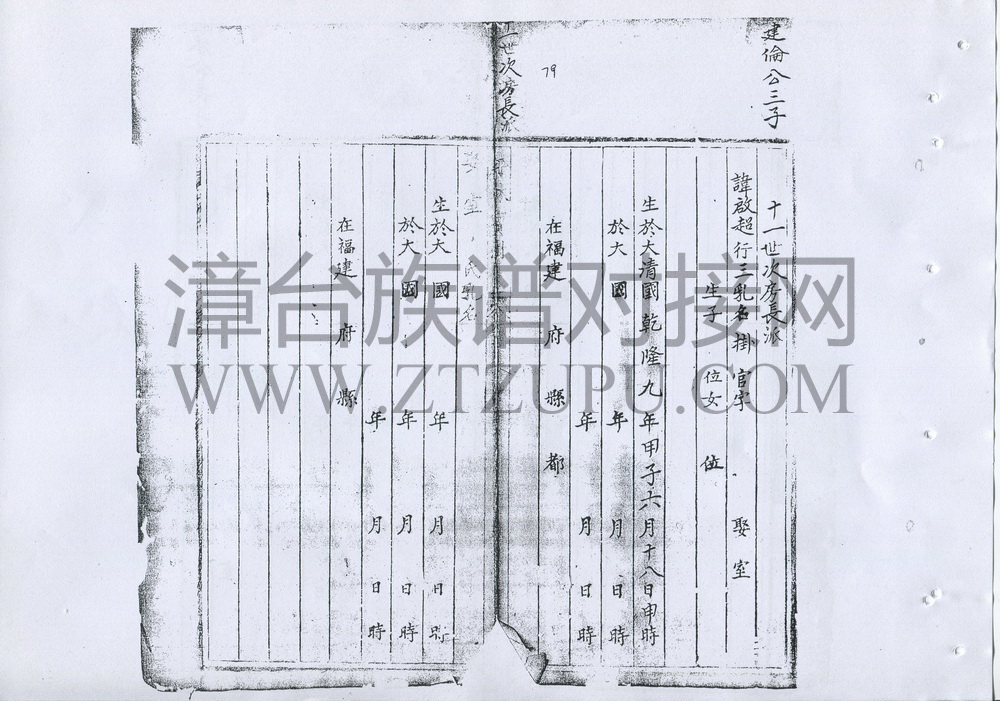 建倫公三子
十一世次房長派
諱啟超行三乳名掛官字 娶室
生子 位女 位
生於大清國乾隆九年甲子六月十八日申時
於大 國 年 月 日 時
年 月 日 時
在福建 府 縣 都
79
十一世次房長派
娶室 氏乳名
生於大 國 年 月 日 時
於大 國 年 月 日 時
年 月 日 時
在福建 府 縣
漳台族谱对接网
WWW.ZTZUPU.COM